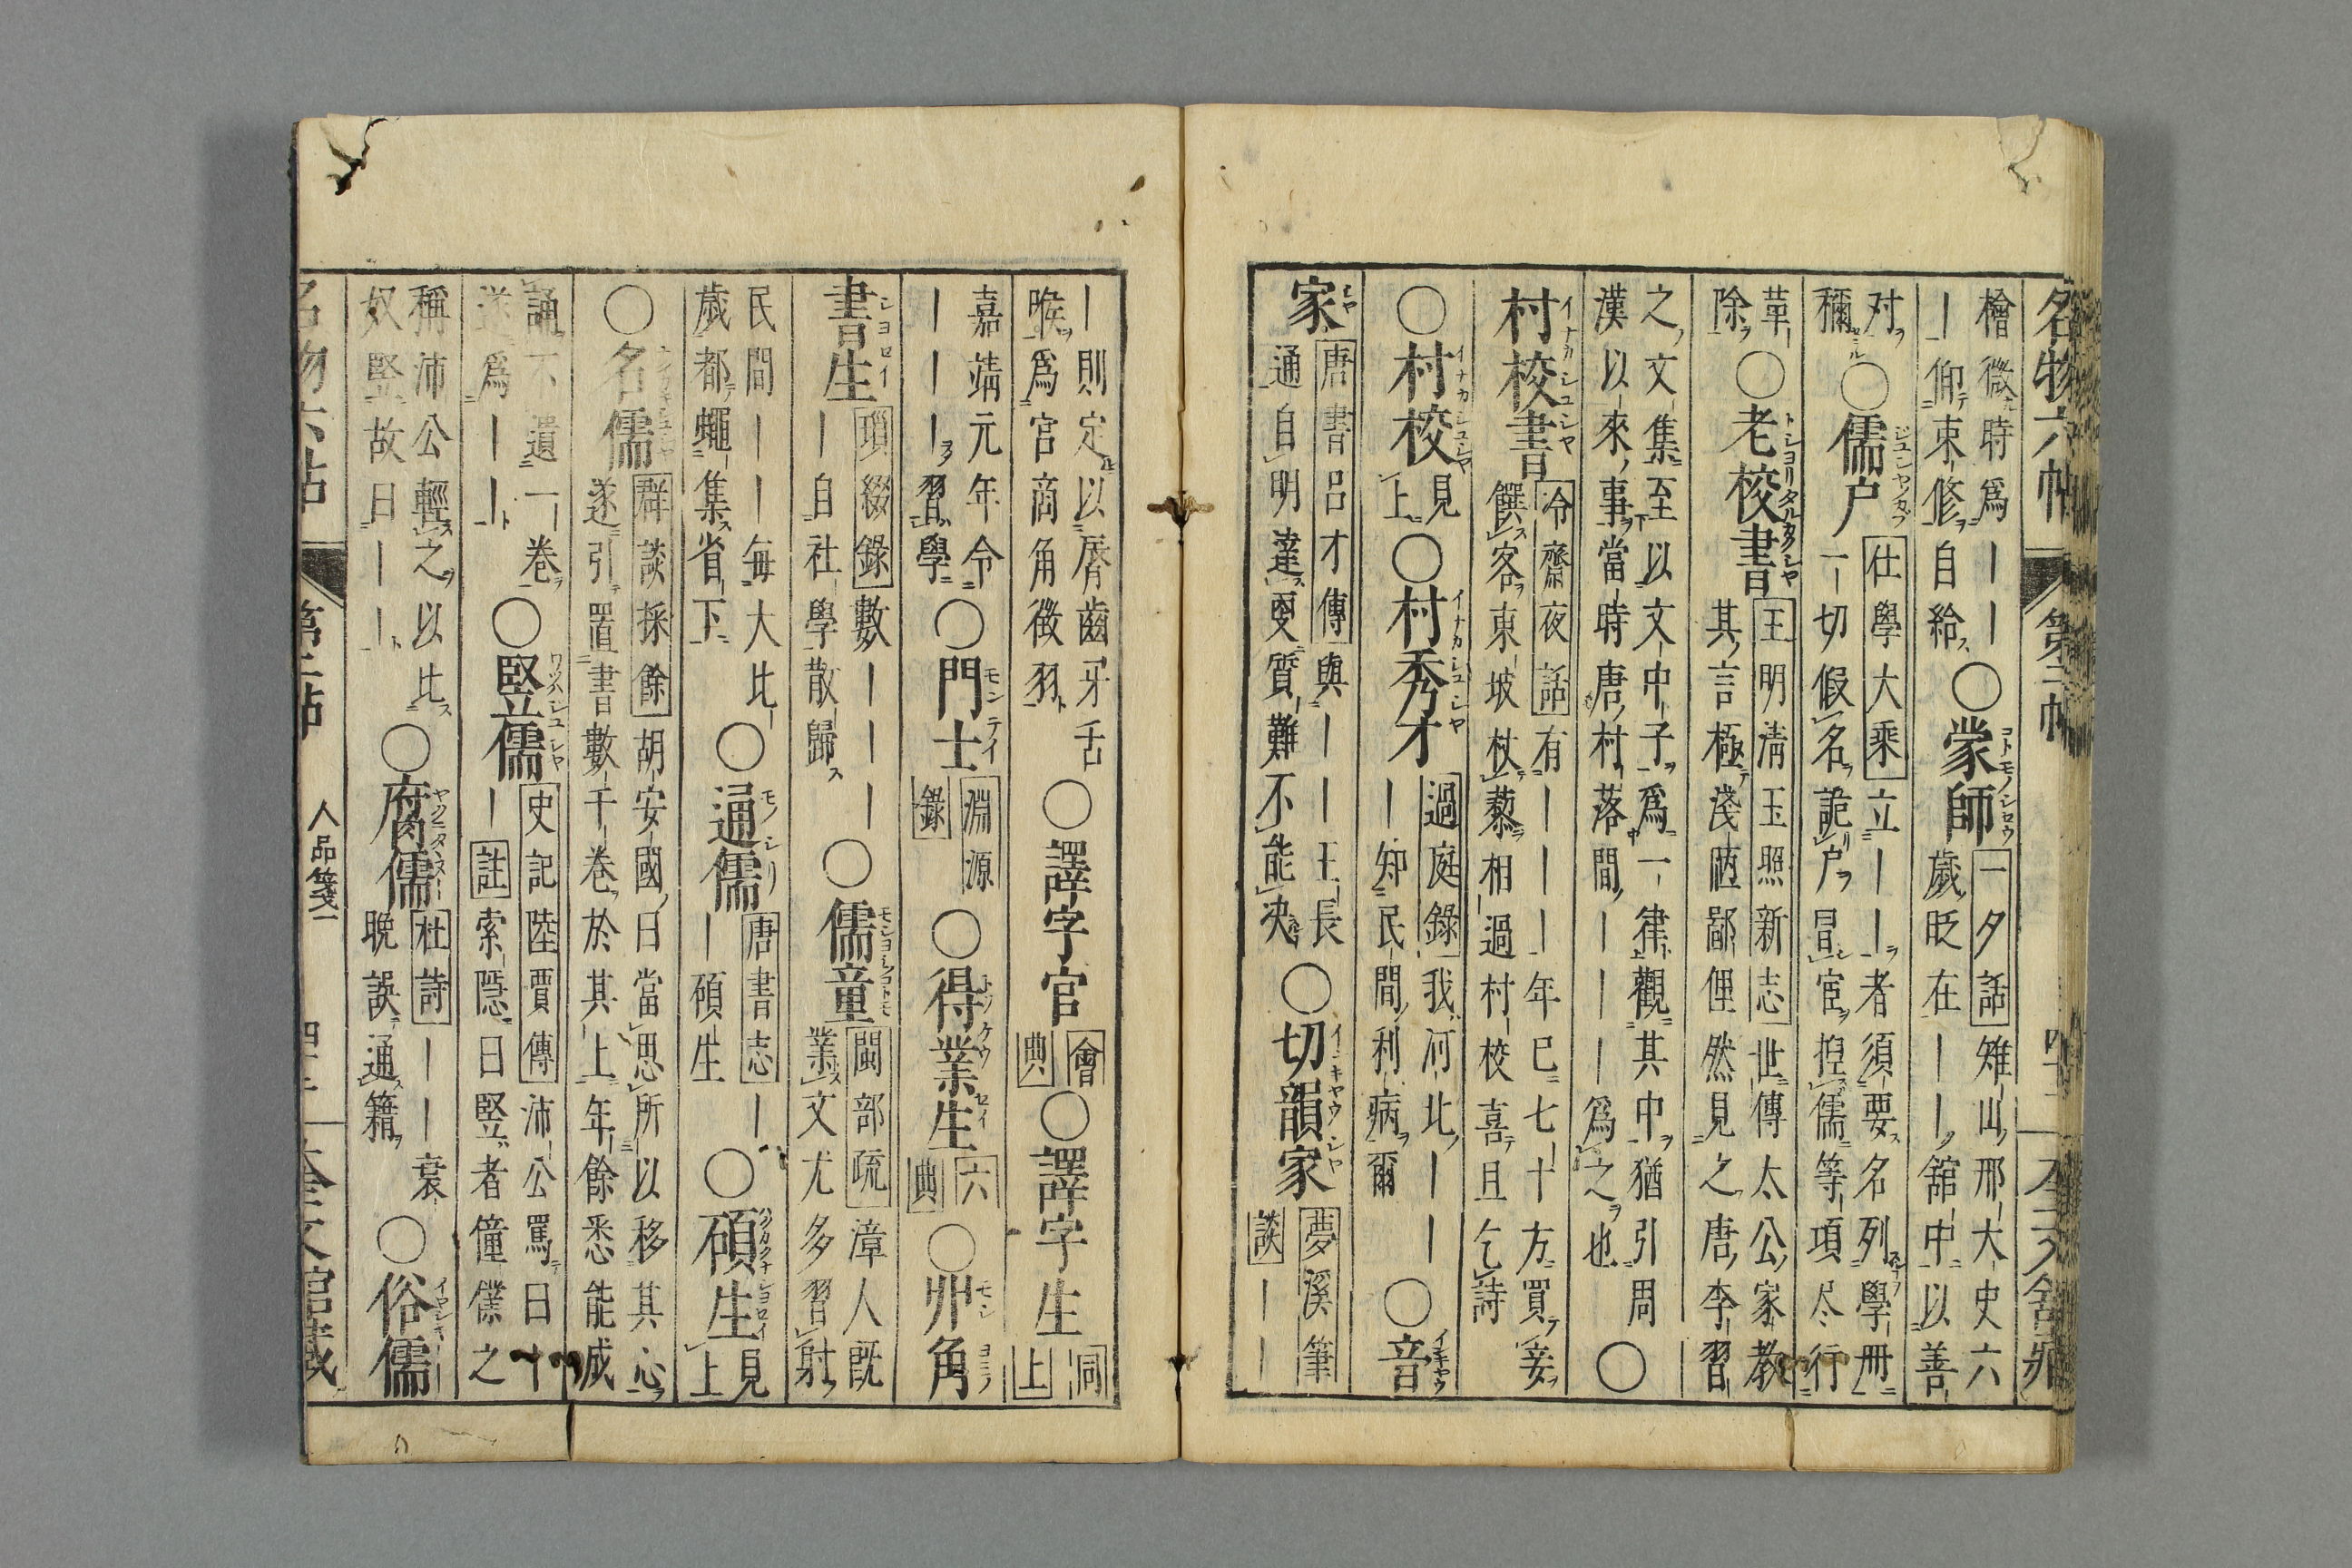 名物六帖 第二帖
檜微時爲｜｜
｜仰束修自給
○蒙師
一夕話雉山邢大史六
歲貶在｜｜舘中以善
对
穪
○儒户
仕學大乘立｜｜者須要名列學冊
一切假名詭户冒宦捏儒等項尽行
革
除
○老校書
王明清玉照新志世傳太公家教
其言極淺陋鄙俚然見之唐李習
之文集至以文中子爲一律觀其中猶引周
漢以來事當時唐村落間｜｜｜爲之也
○村校書
冷齋夜話有｜｜｜年已七十方買妾
饌客東坡杖藜相過村校喜且乞詩
○村校
見
上
○村秀才
過庭錄我河北｜｜
｜知民間利病爾
○音家
唐書呂才傳與｜｜王長
通自明達更質難不能决
○切韻家
夢溪筆
談｜｜
｜則定以唇齒牙舌
㬋爲宮商角徵羽
○譯字官
會
典
○譯字生
同
上
嘉靖元年令
｜｜｜習學
○門士
淵源
錄
○得業生
六
典
○丱角書生
瑣綴錄數｜｜｜
｜自社學散歸
○儒童
閩部疏漳人既
業文尤多習射
民間｜｜每大比
歲都蠅集省下
○通儒
唐書志｜
｜碩生
○碩生
見
上
○名儒
群談採餘胡安國曰當思所以移其心
遂引置書數千卷於其上年餘悉能成
誦不遺一卷
遂爲｜｜
○竪儒
史記陸賈傳沛公罵曰十
｜註索隱曰竪者僮僕之
稱沛公輕之以比
奴竪故曰｜｜
○腐儒
杜詩｜｜衰
晩誤通籍
○俗儒
人品箋一